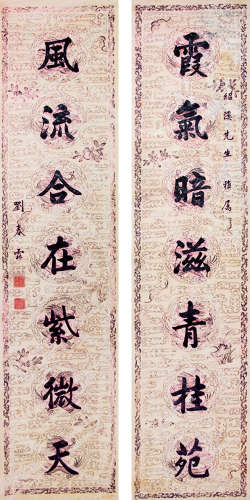 霞氣暗滋青桂苑
先生 雅屬
風流合在紫微天
劉春霖